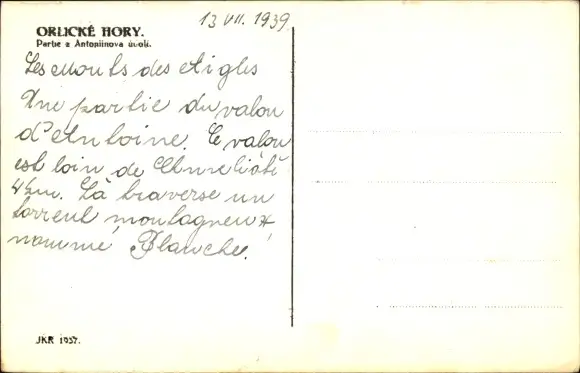 13 VII. 1939
ORLICKÉ HORY.
Partie z Antoniinova údolí.
Les Monts des Aigles
Une partie du valou
d'Antoine. Ce valou
est loin de
4 km. Là traverse un
torrent montagneux
nommé, Blanche!
JKR 1937.